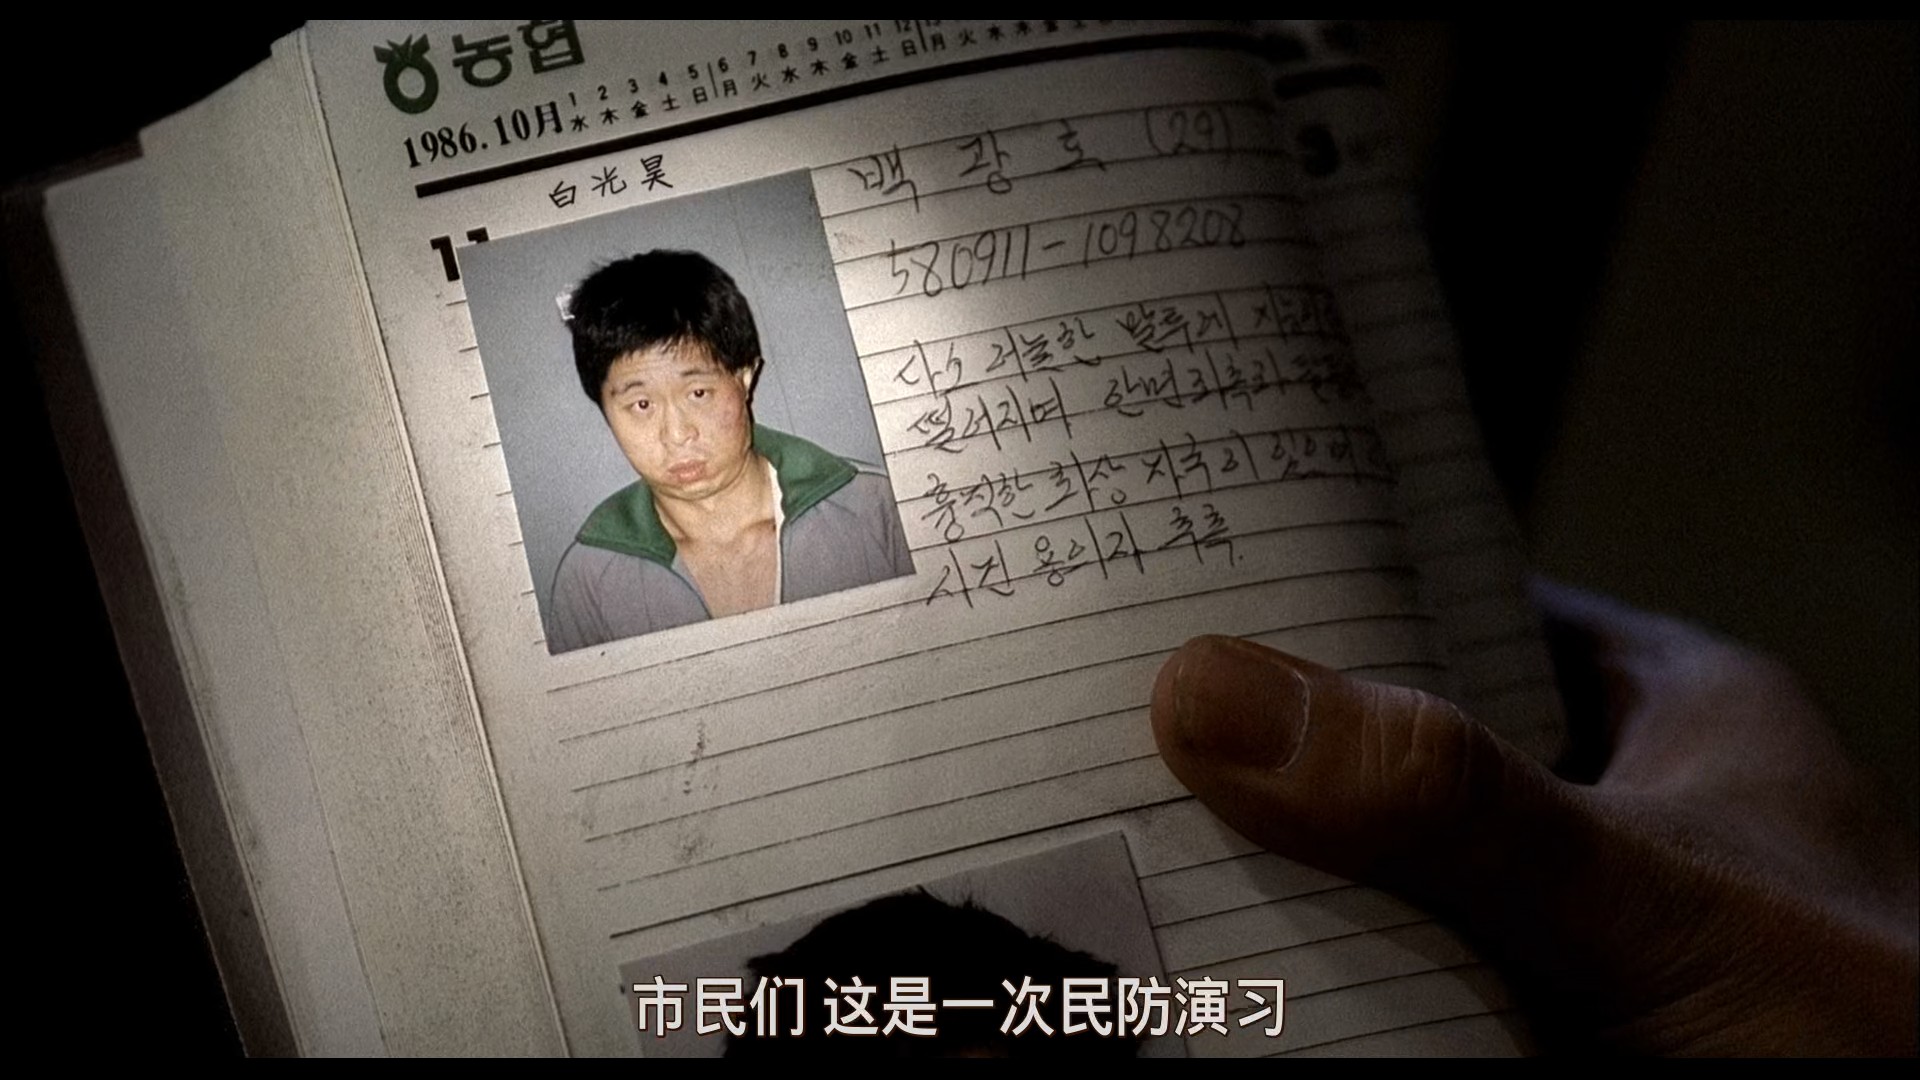 농협
1 2 3 4 5 6 7 8 9 10 11 12 13
1986.10月 水 木 金 土 日 月 火 水 木 金 土 日 月 火 水 木 金 土
白光昊
백 광 호 (29)
11
580911-1098208
사소 려늘한 말투에 지능이
떨어지며 안면 좌측과
흉직한 화상 자국이 있으며
사건 용의자 추측.
市民们 这是一次民防演习